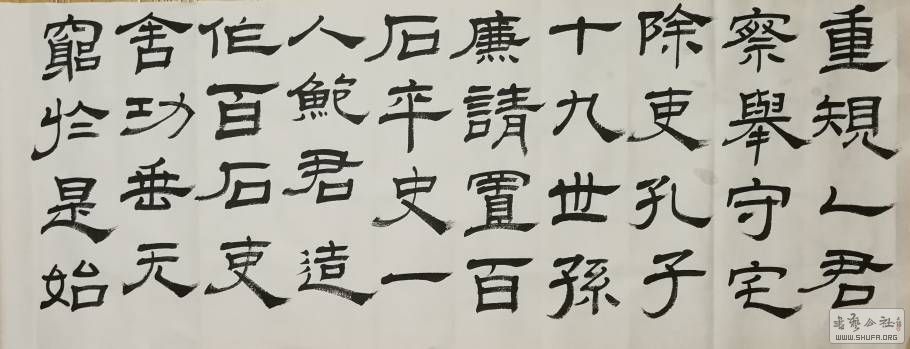 重規乙君
察舉守宅
除吏孔子
十九世孫
廉請置百
石卒史一
人鮑君造
作百石吏
舍功垂无
窮於是始
書藝公社
WWW.SHUFA.ORG